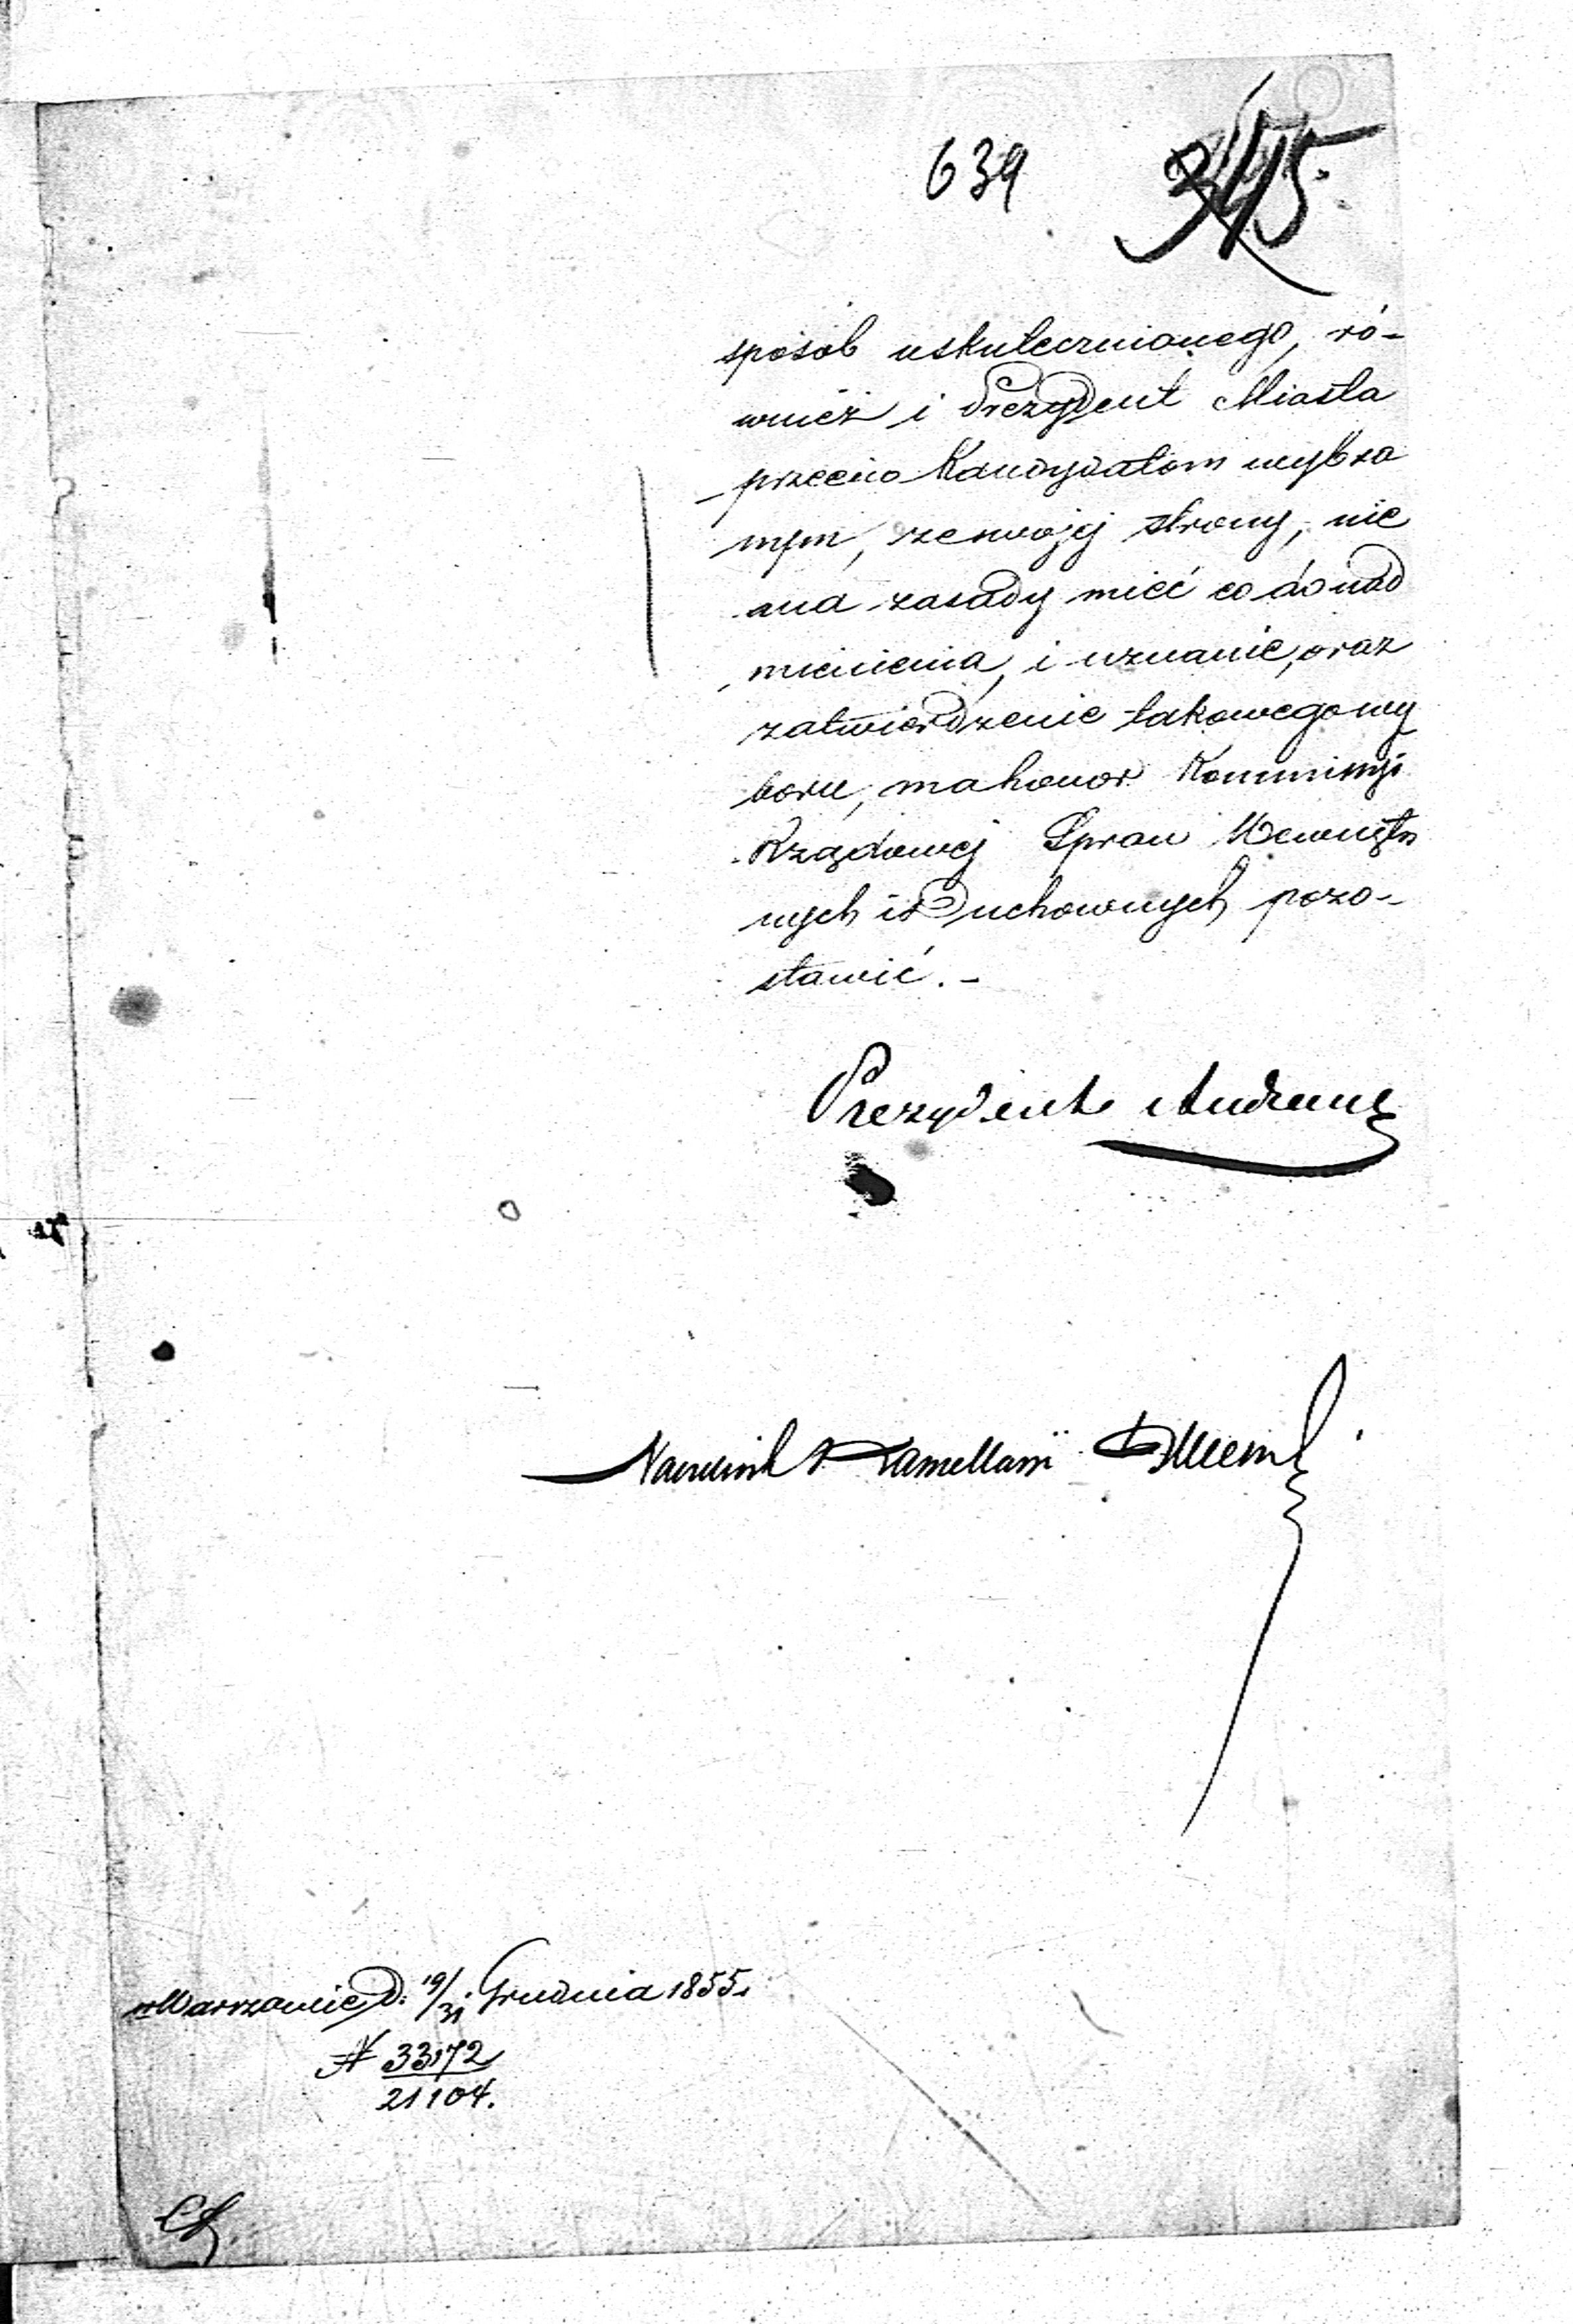 639 345.
sposób uskutecznionego, ró-
wnież i Prezydent Miasta
przeciw Kandydatom wybra
nym, ze swojej strony, nie
ma zasady mieć co do nad
mienienia, i uznanie, oraz
zatwierdzenie takowego wy
boru, ma honor Kommissyi
Rządowej Spraw Wewnętrz
nych i Duchownych pozo-
stawić. -
Prezydent Andrault
Naczelnik Kancellarii
w Warszawie D. 19/31 Grudnia 1855.
N 33172
21104.